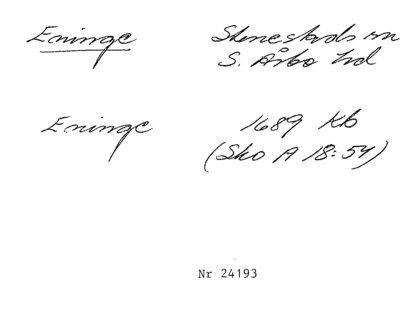 Eninge Stenestads sn
S. Åsbo hd
Eninge 1689 Kb
(Sko A 18:54)
Nr 24193